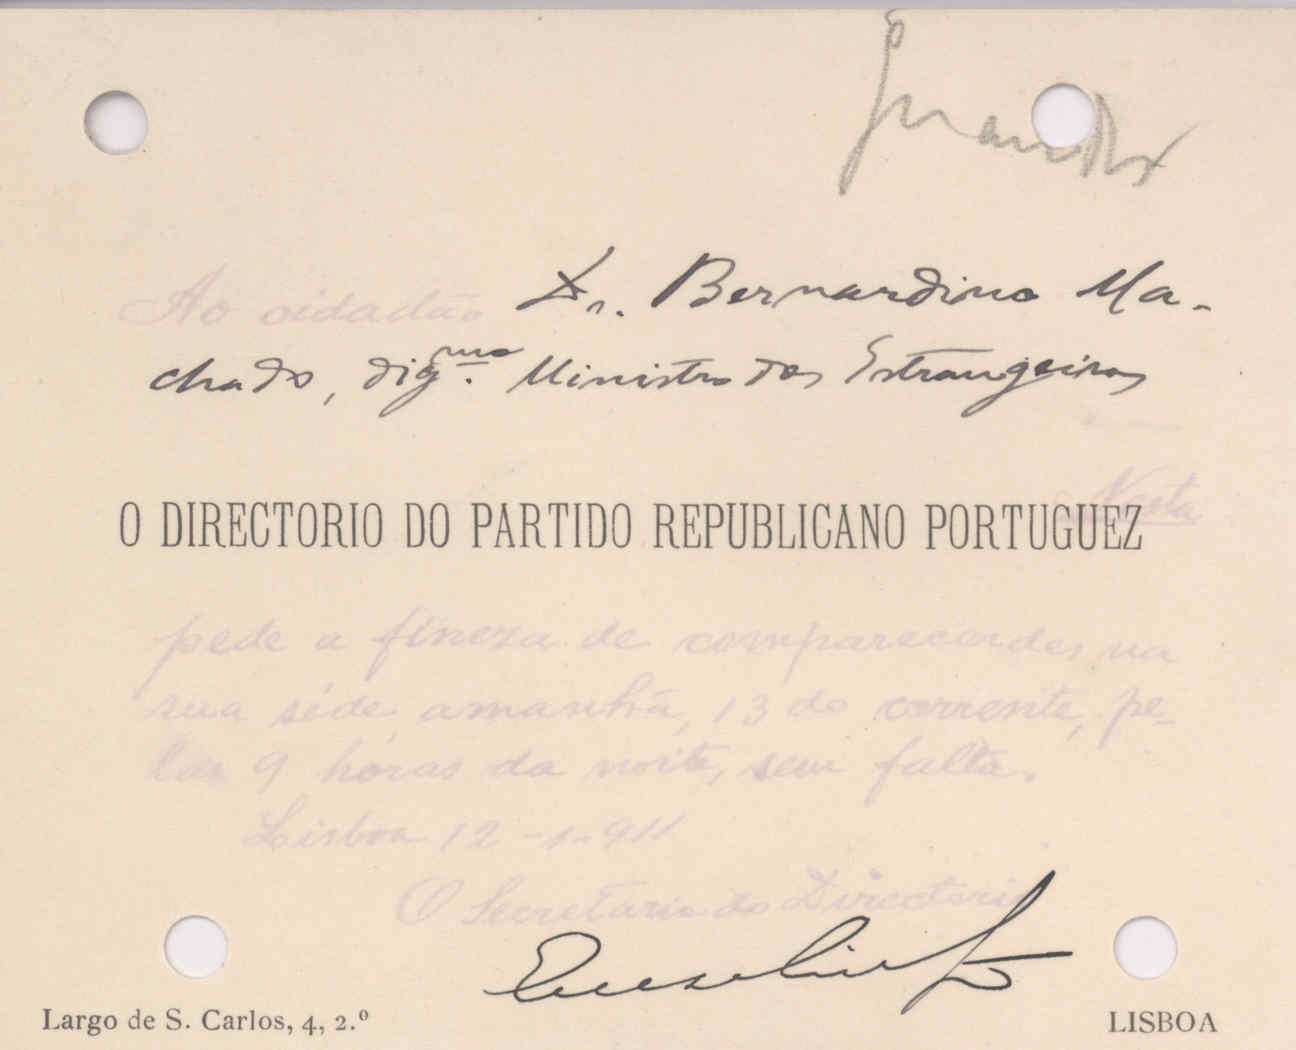 Guardar
Ao cidadão Dr. Bernardino Ma-
chado, dig.mo Ministro dos Estrangeiros
Nesta
O DIRECTORIO DO PARTIDO REPUBLICANO PORTUGUEZ
pede a fineza de comparecerdes na
sua séde, amanhã, 13 do corrente, pe-
las 9 horas da noite, sem falta.
Lisboa 12-1-911
O Secretario do Directorio
Eusebio Leão
Largo de S. Carlos, 4, 2.º
LISBOA